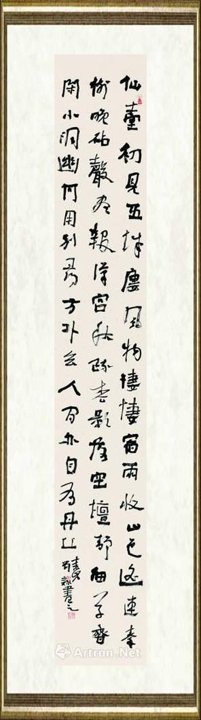 仙臺初見五城廔風物悽悽宿雨收山色遙連秦
樹晚砧聲近報漢宮秋疏松影落空壇靜細草香
閑小洞幽何用別尋方外去人間亦自有丹丘
書之
Artron.Net